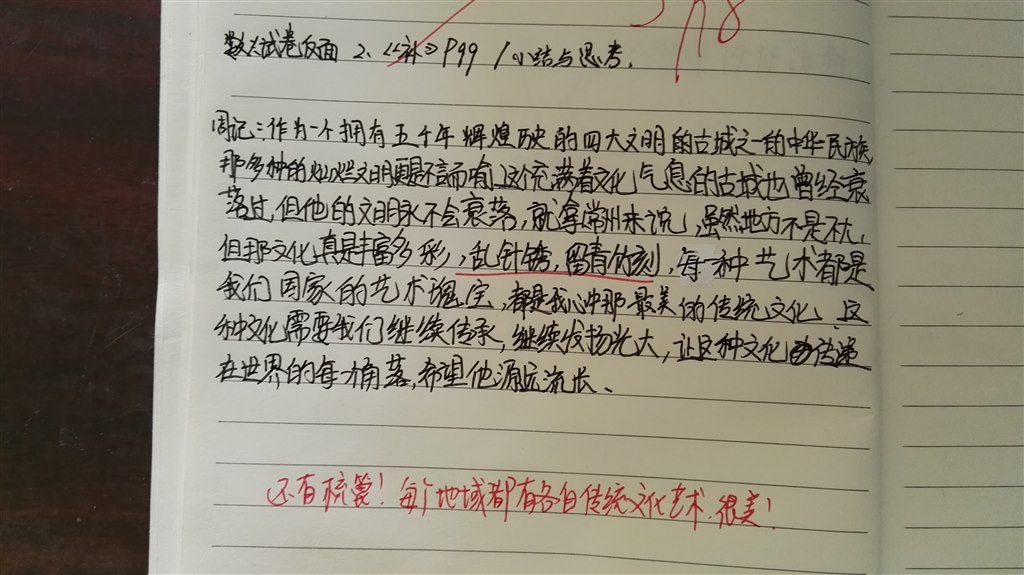 数大试卷反面 2、《补》P99 1小结与思考.
周记:作为一个拥有五千年辉煌历史的四大文明的古城之一的中华民族,
那多种的灿烂文明更是不言而喻,这充满着文化气息的古城也曾经衰
落过,但他的文明永不会衰落,就拿常州来说,虽然地方不是不大,
但那文化真是丰富多彩,乱针锈,留青竹刻,每一种艺术都是
我们国家的艺术瑰宝,都是我心中那最美的传统文化、这
种文化需要我们继续传承,继续发扬光大,让这种文化传递
在世界的每一角落,希望他源远流长、
还有梳篦!每个地域都有各自传统文化艺术.很美!